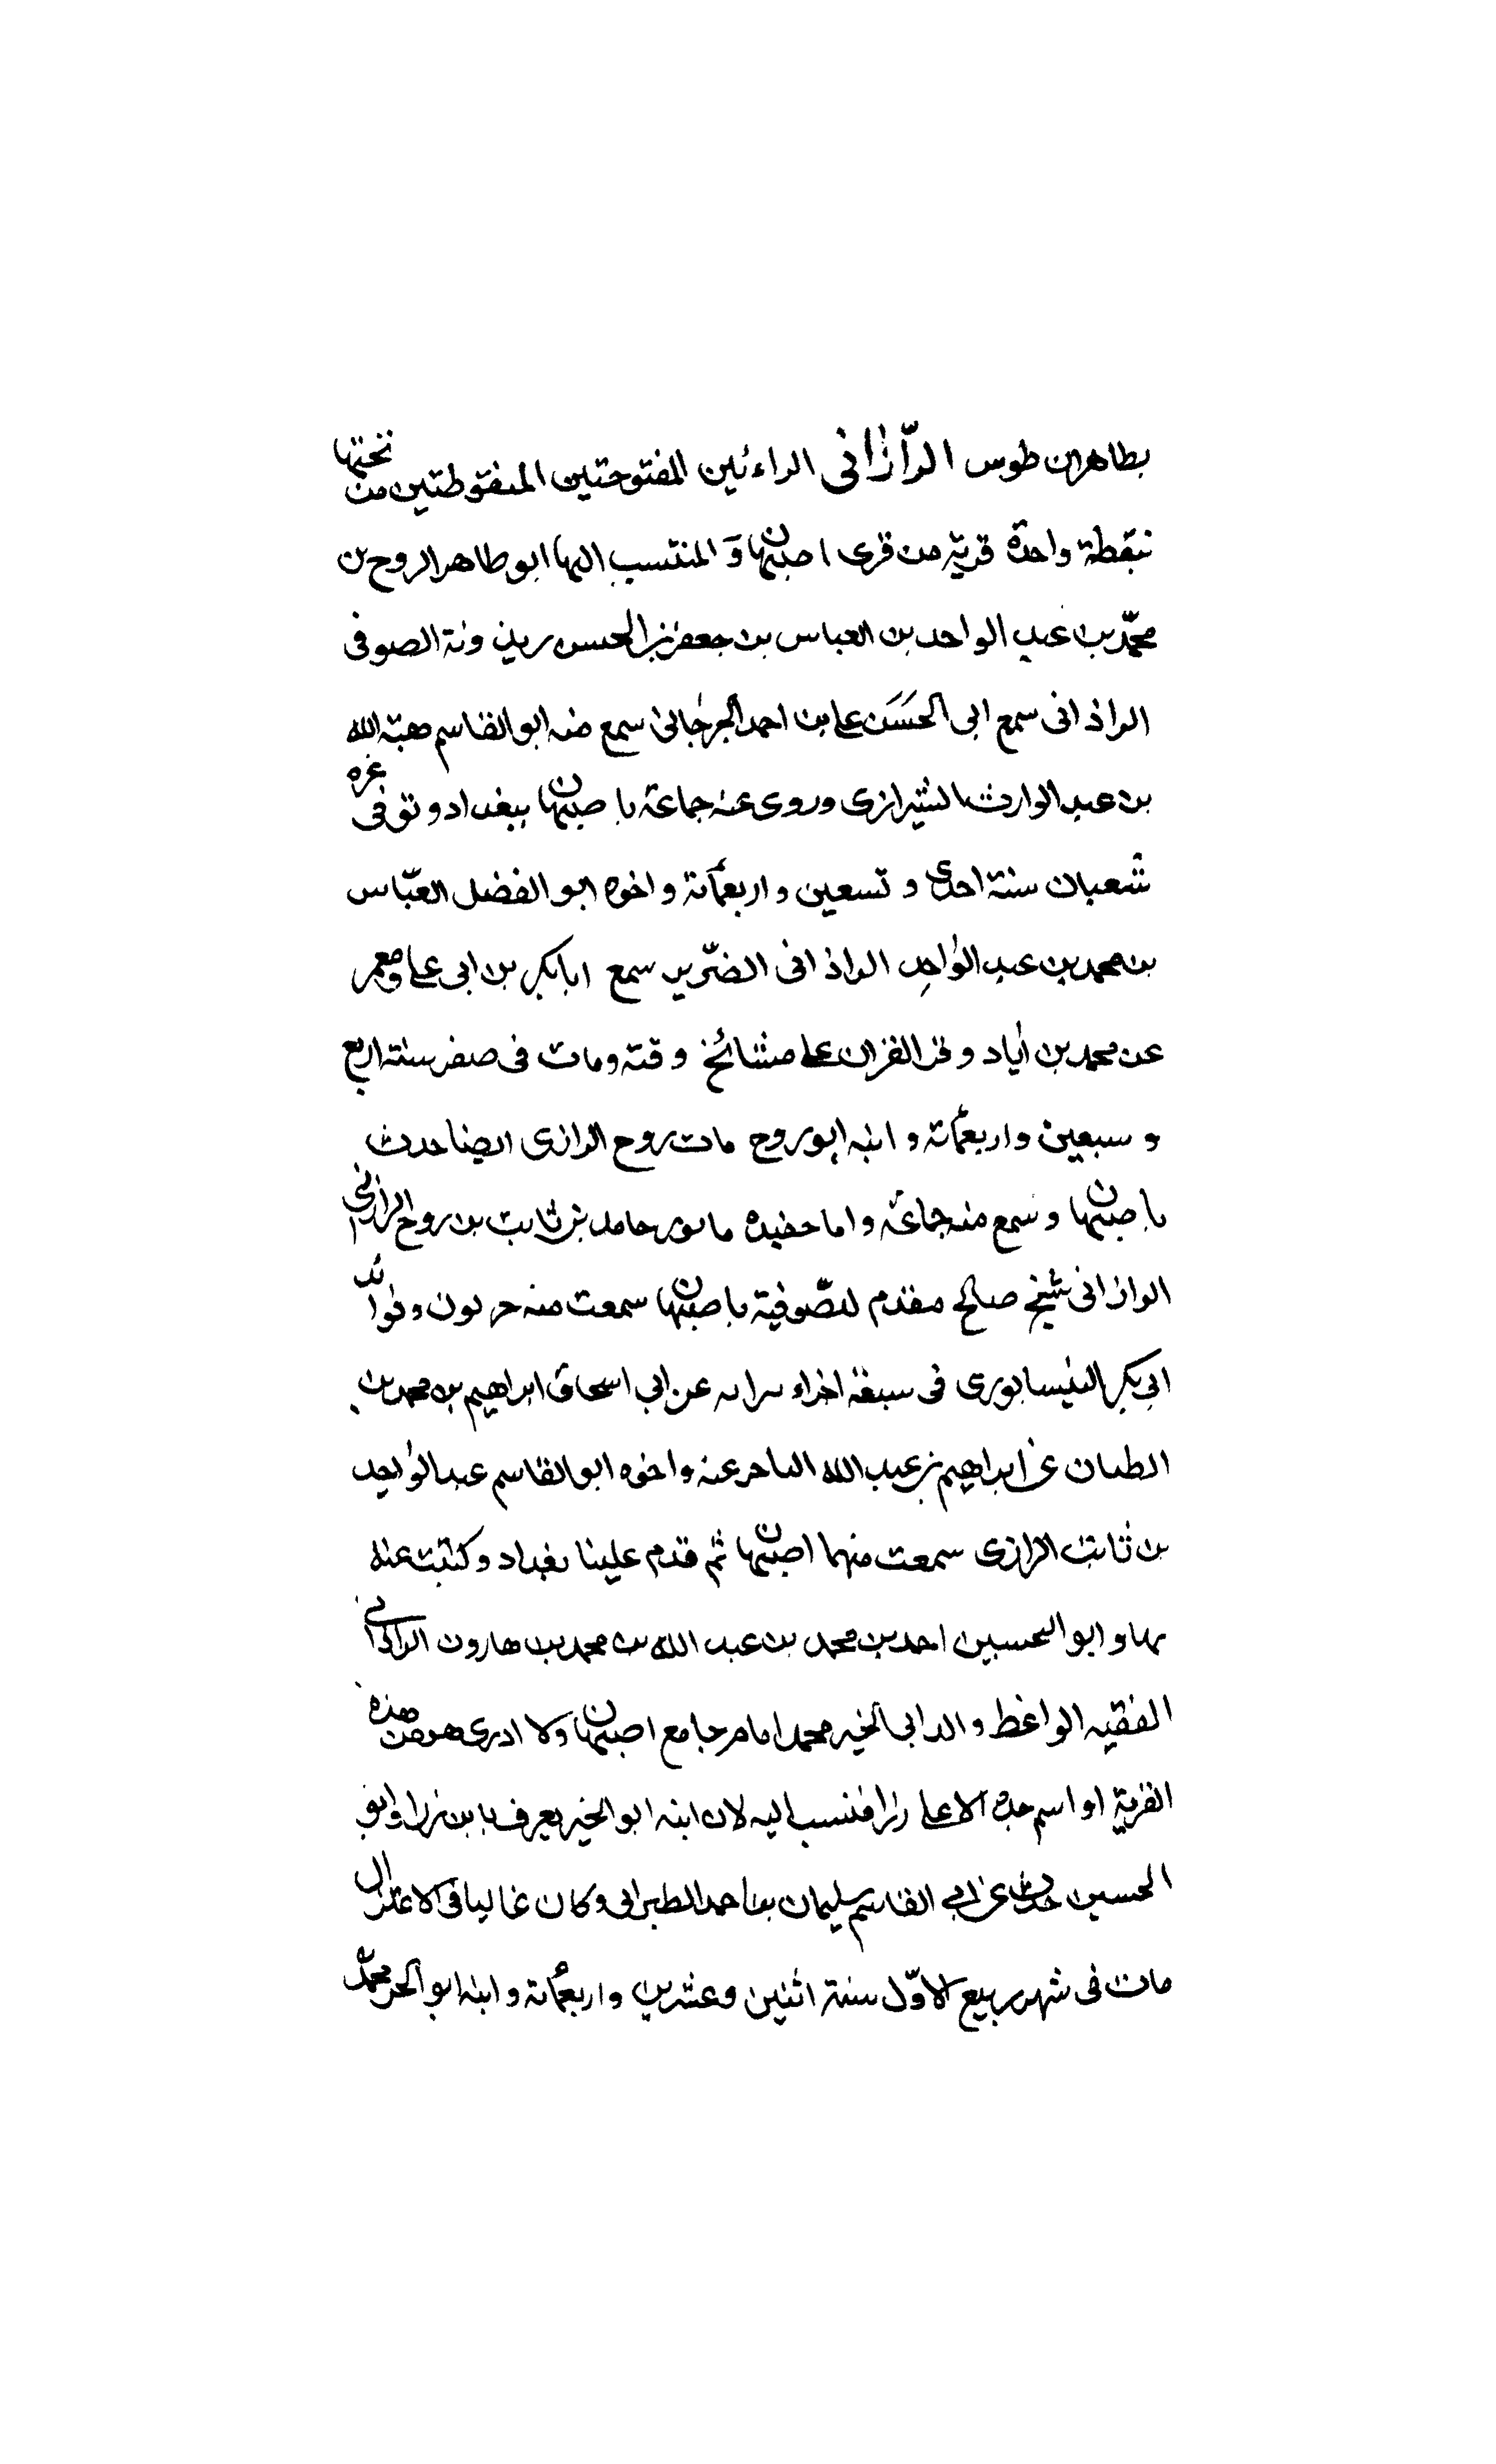 بطاهران طوس الرّازانى الراءين المفتوحتين المنقوطتين من تحتها
بنقطة واحدة قرية من قرى اصبهان و المنتسب اليها ابو طاهر الروح بن
محمّد بن عبد الواحد بن العباس بن جعفر بن الحسن بن الصوفى
الراذانى سمع ابى الحَسَن على بن احمد الجرجانى سمع منه ابو القاسم هبة الله
بن عبد الوارث الشيرازى وروى عنه جماعة باصبهان ببغداد و توفى غره
شعبان سنة احدى و تسعين و اربعمائة و اخوه ابو الفضل العبّاس
بن محمد بن عبد الواحد الراذانى الضرّير سمع ابا بكر بن ابى على ومعمر
عن محمد بن اياد و القران على مشائخ وقته ومات فى صفر سنة اربع
و سبعين و اربعمائة و ابنه ابو روح مات روح الرازى ايضا حدث
باصبهان و سمع منه جماعة و اما حفيده حامد بن ثابت بن روح الرازانى
الرازانى شيخ صالح مقدم للصّوفية باصبهان سمعت منه
ابى بكر النيسابورى فى سبعة اخراء عن ابى اسحاق ابراهيم بن محمد بن
الطيان عن ابراهيم بن عبد الله عنه واخوه ابو القاسم عبد الواحد
بن ثابت الرازى سمعت منهما اصبهان ثم قدم علينا بغداد و كتبت عنه
بها و ابو الحسين احمد بن محمد بن عبد الله بن محمد بن هارون
الفقيه الواعظ والد ابى الخير محمد امام جامع اصبهان ولا ادرى هو من هذه
القرية او اسم جده الاعلى رارا فنسب اليه لان ابنه ابو الخير يعرف بابن رارا وابو
الحسين حدث عن ابى القاسم سليمان بن احمد الطبرانى وكان غاليا فى الاعتزال
مات فى شهر ربيع الاوّل سنة اثنين وعشرين و اربعمائة و ابنه ابو الخر محمّد